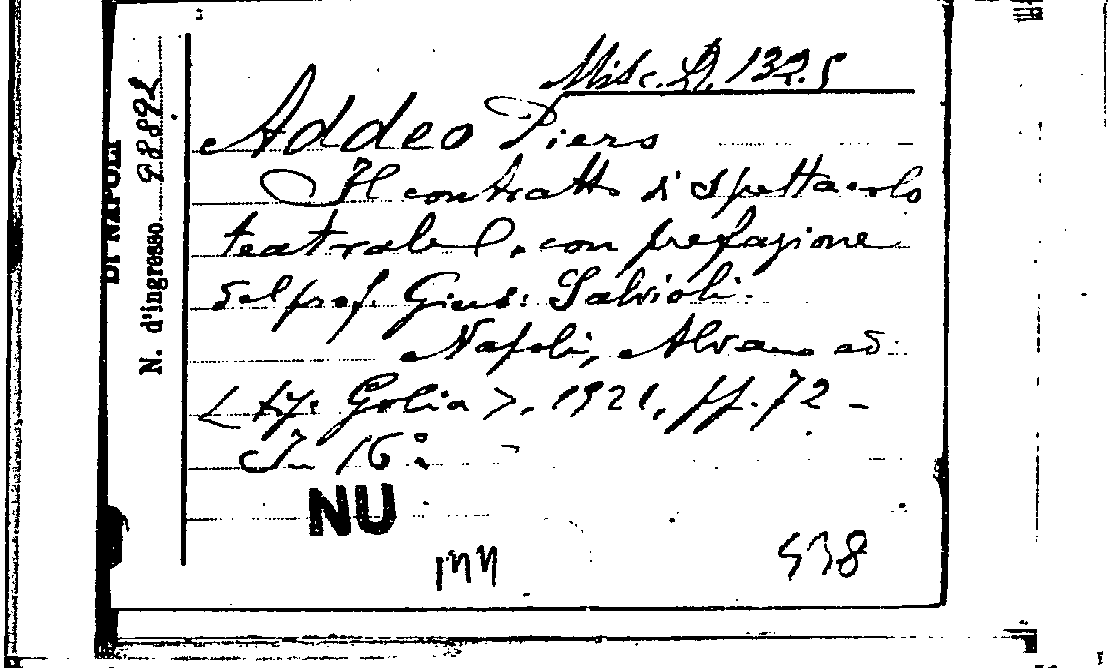 Misc. A. 132.5
Addeo Piero
Il contratto di spettacolo
teatrale, con prefazione
del prof. Gius: Salvioli.
Napoli, Alvano ed:
<tip. Golia>, 1921, pp. 72 -
In 16°:
NU
538
DI NAPOLI
N. d'ingresso 98892